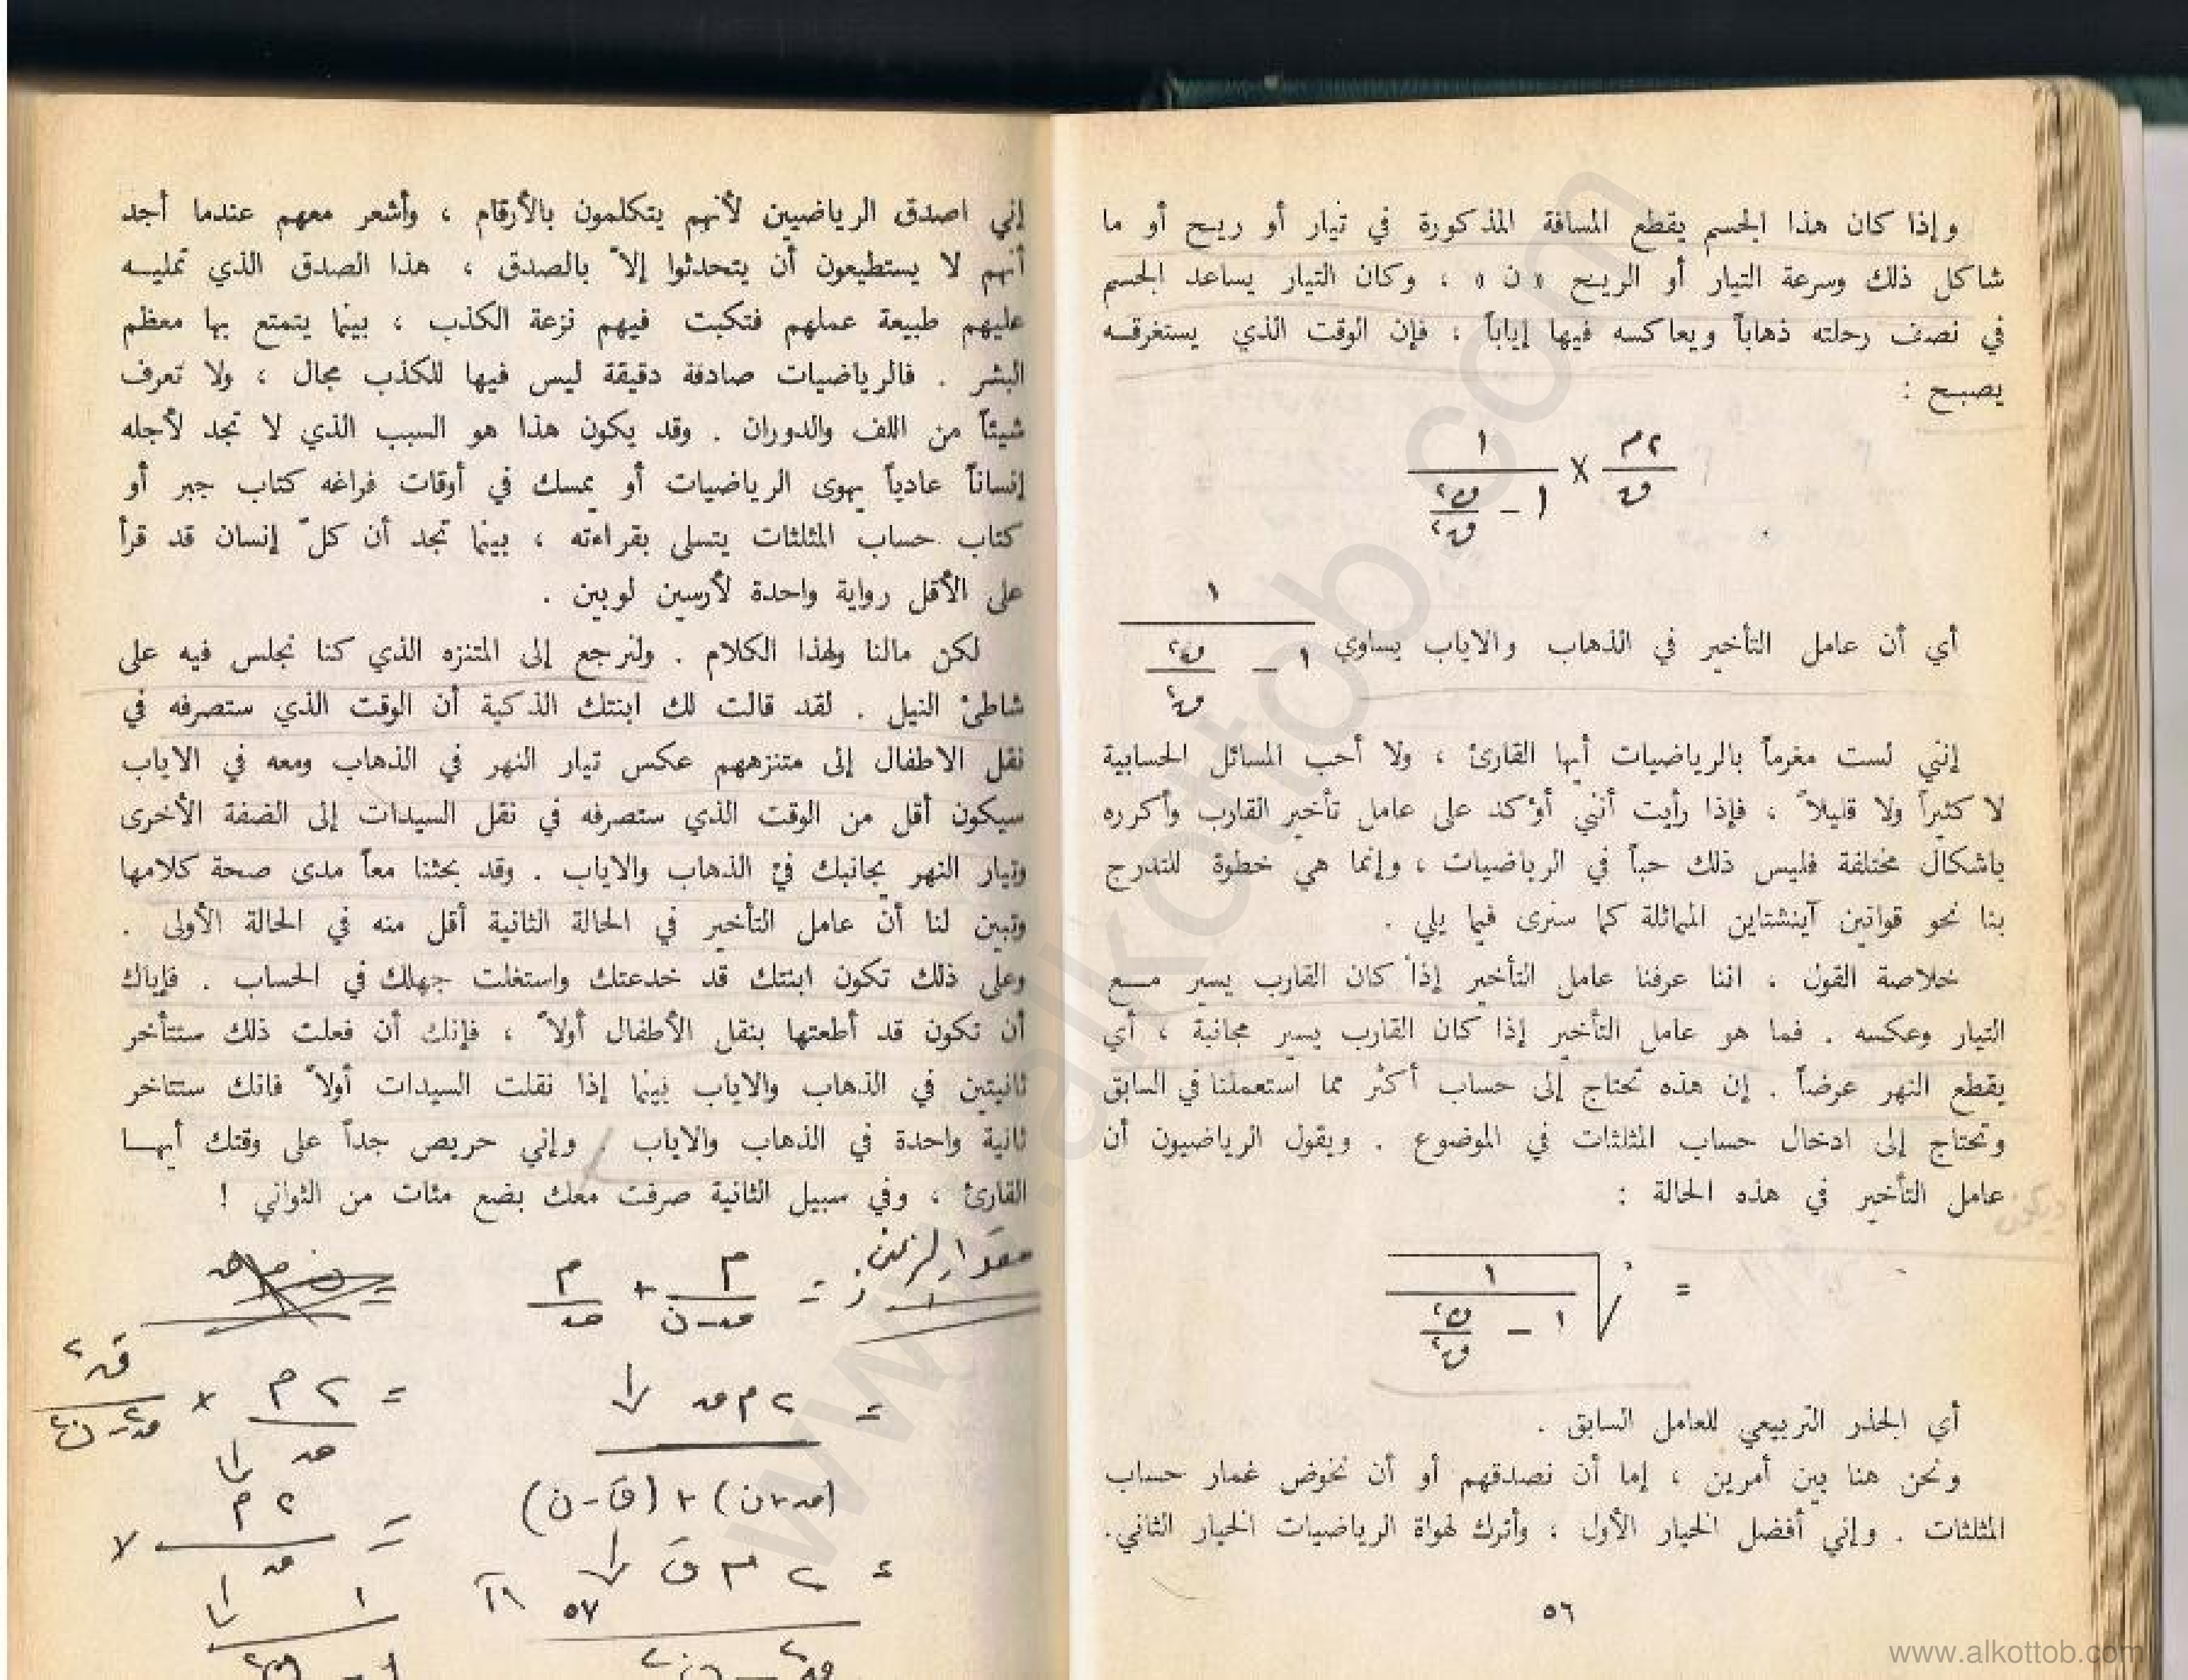 وإذا كان هذا الجسم يقطع المسافة المذكورة في تيار أو ريح أو ما
شاكل ذلك وسرعة التيار أو الريح « ن » ، وكان التيار يساعد الجسم
في نصف رحلته ذهاباً ويعاكسه فيها إياباً ؛ فإن الوقت الذي يستغرقه
يصبح :
٢م / ق × ١ / (١ - ن٢ / ق٢)
أي أن عامل التأخير في الذهاب والاياب يساوي ١ / (١ - ن٢ / ق٢)
إنني لست مغرماً بالرياضيات أيها القارئ ، ولا أحب المسائل الحسابية
لا كثيراً ولا قليلاً ، فإذا رأيت أنني أؤكد على عامل تأخير القارب وأكرره
باشكال مختلفة فليس ذلك حباً في الرياضيات ، وإنما هي خطوة للتدرج
بنا نحو قوانين آينشتاين المماثلة كما سنرى فيما يلي .
خلاصة القول ، اننا عرفنا عامل التأخير إذا كان القارب يسير مع
التيار وعكسه . فما هو عامل التأخير إذا كان القارب يسير مجانبة ، أي
يقطع النهر عرضاً . إن هذه تحتاج إلى حساب أكثر مما استعملنا في السابق
وتحتاج إلى ادخال حساب المثلثات في الموضوع . ويقول الرياضيون أن
عامل التأخير في هذه الحالة :
= √(١ / (١ - ن٢ / ق٢))
أي الجذر التربيعي للعامل السابق .
ونحن هنا بين أمرين ، إما أن نصدقهم أو أن نخوض غمار حساب
المثلثات . وإني أفضل الخيار الأول ، وأترك لهواة الرياضيات الخيار الثاني.
٥٦
إني اصدق الرياضيين لأنهم يتكلمون بالأرقام ، وأشعر معهم عندما أجد
أنهم لا يستطيعون أن يتحدثوا إلاّ بالصدق ، هذا الصدق الذي تمليه
عليهم طبيعة عملهم فتكبت فيهم نزعة الكذب ، بينما يتمتع بها معظم
البشر . فالرياضيات صادقة دقيقة ليس فيها للكذب مجال ، ولا تعرف
شيئاً من اللف والدوران . وقد يكون هذا هو السبب الذي لا تجد لأجله
إنساناً عادياً يهوى الرياضيات أو يمسك في أوقات فراغه كتاب جبر أو
كتاب حساب المثلثات يتسلى بقراءته ، بينما تجد أن كلّ إنسان قد قرأ
على الأقل رواية واحدة لأرسين لوبين .
لكن مالنا ولهذا الكلام . ولنرجع إلى المتنزه الذي كنا نجلس فيه على
شاطئ النيل . لقد قالت لك ابنتك الذكية أن الوقت الذي ستصرفه في
نقل الاطفال إلى متنزههم عكس تيار النهر في الذهاب ومعه في الاياب
سيكون أقل من الوقت الذي ستصرفه في نقل السيدات إلى الضفة الأخرى
وتيار النهر بجانبك في الذهاب والاياب . وقد بحثنا معاً مدى صحة كلامها
وتبين لنا أن عامل التأخير في الحالة الثانية أقل منه في الحالة الأولى .
وعلى ذلك تكون ابنتك قد خدعتك واستغلت جهلك في الحساب . فإياك
أن تكون قد أطعتها بنقل الأطفال أولاً ، فإنك أن فعلت ذلك ستتأخر
ثانيتين في الذهاب والاياب بينما إذا نقلت السيدات أولاً فانك ستتاخر
ثانية واحدة في الذهاب والاياب . وإني حريص جداً على وقتك أيها
القارئ ، وفي سبيل الثانية صرفت معك بضع مئات من الثواني !
مقدار الزمن
٥٧
www.alkottob.com
www.alkottob.com